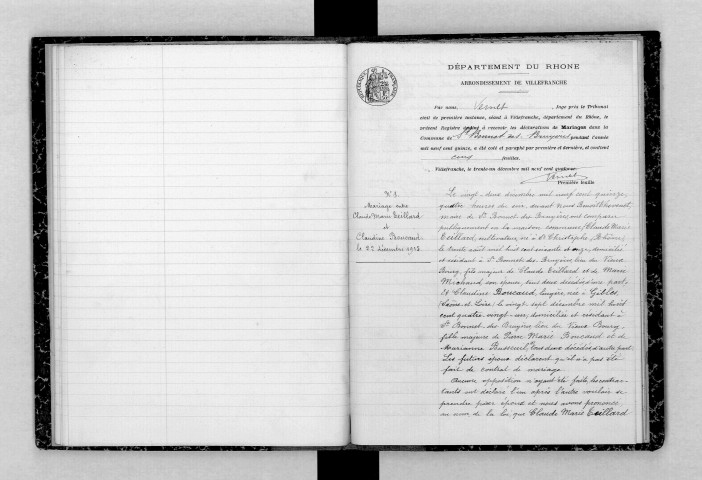 DÉPARTEMENT DU RHONE
ARRONDISSEMENT DE VILLEFRANCHE
Par nous, , Juge près le Tribunal
civil de première instance, séant à Villefranche, département du Rhône, le
présent Registre destiné à recevoir les déclarations de Mariages dans la
Commune de St Bonnet des Bruyères pendant l'année
mil neuf cent quinze, a été coté et paraphé par première et dernière, et contient
cinq feuilles.
Villefranche, le trente-un décembre mil neuf cent quatorze.
Première feuille
N° 1.
Mariage entre
Claude Marie Teillard
et
Claudine Boucaud
le 22 décembre 1915
Le vingt-deux décembre mil neuf cent quinze,
quatre heures du soir, devant Nous Benoit
maire de St Bonnet des Bruyères ont comparu
publiquement en la maison commune : Claude Marie
Teillard, cultivateur, né à St Christophe, (Rhône)
le trente août mil huit cent soixante et onze, domicilié
et résidant à St Bonnet des Bruyères, lieu du Vieux
Bourg, fils majeur de Claude Teillard et de Marie
son épouse, tous deux décédés, d'une part,
Et Claudine Boucaud, lingère, née à
(Saône et Loire) le vingt sept décembre mil huit
cent quatre-vingt-un, domiciliée et résidant à
St Bonnet des Bruyères, lieu du Vieux Bourg,
fille majeure de Pierre Marie Boucaud et de
Marianne tous deux décédés, d'autre part.
Les futurs époux déclarent qu'il n'a pas été
fait de contrat de mariage.
Aucune opposition n'ayant été faite, les contrac-
tants ont déclaré l'un après l'autre vouloir se
prendre pour époux et nous avons prononcé
au nom de la loi que Claude Marie Teillard